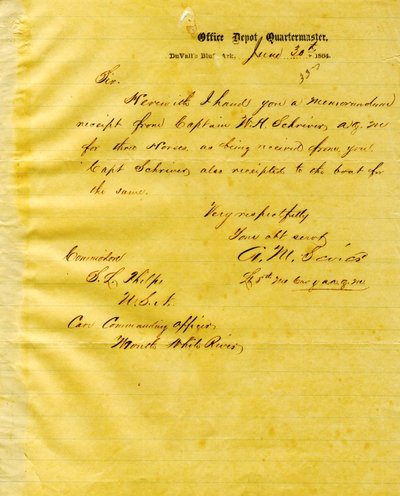 Office Depot Quartermaster,
DuVall's Bluff, Ark, June 30th 1864.
Sir.
Herewith I hand you a memorandum
receipt from Captain W. H. Schriver, a.q.m
for three Horses, as being received from you
Capt Schriver, also receipted to the boat for
the same.
Very respectfully
Your obt servt
A. M.
Lt 5th Mo Cav & a.a.q.m.
Commodore
S. L. Phelps
U.S.N.
Care Commanding Officer,
Mouth White River,